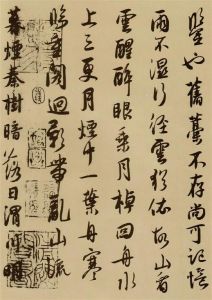 也舊藁不存尚可記憶
雨不濕行徑雲猶依故山看
雲醒醉眼乘月棹回舟水
上三更月煙中一葉舟寒
臨重關迥影帶亂山流
暮煙秦樹暗落日渭明